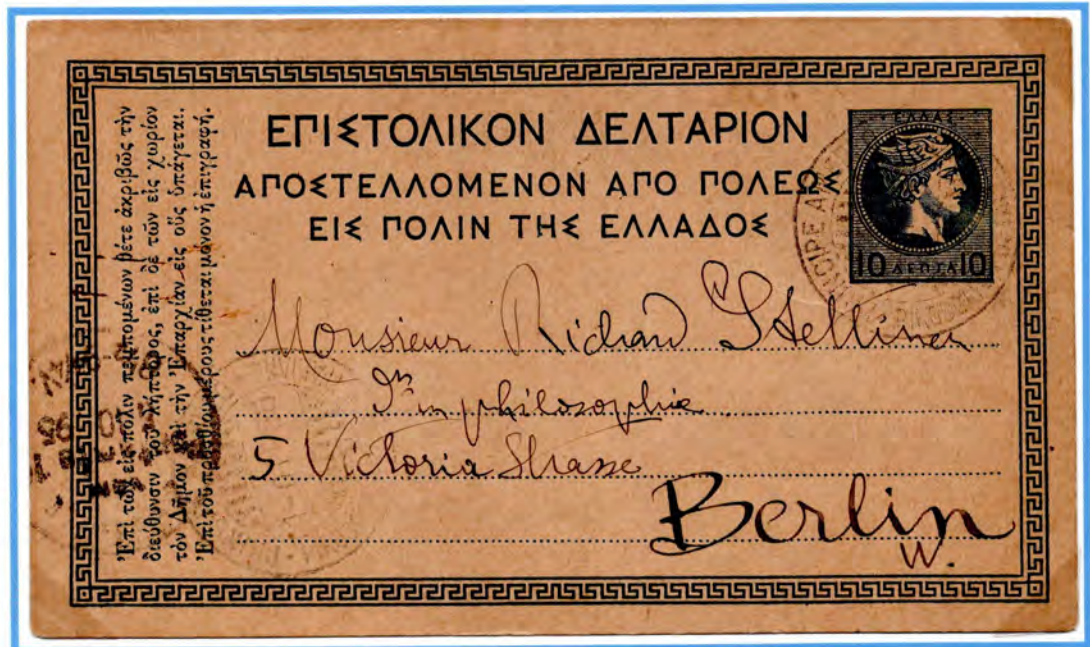 ΕΠΙΣΤΟΛΙΚΟΝ ΔΕΛΤΑΡΙΟΝ
ΑΠΟΣΤΕΛΛΟΜΕΝΟΝ ΑΠΟ ΠΟΛΕΩΣ
ΕΙΣ ΠΟΛΙΝ ΤΗΣ ΕΛΛΑΔΟΣ
ΕΛΛΑΣ
10 ΛΕΠΤΑ 10
Ἐπὶ τῶν εἰς πόλιν πεμπομένων θέτε ἀκριβῶς τὴν
διεύθυνσιν τοῦ λήπτορος, ἐπὶ δὲ τῶν εἰς χωρίον
τὸν Δῆμον καὶ τὴν Ἐπαρχίαν εἰς οὓς ὑπάγεται.
Ἐπὶ τοῦ προσθίου μέρους τίθεται μόνον ἡ ἐπιγραφή.
Monsieur Richard
in philosophie
5 Victoria Strasse
Berlin
W.